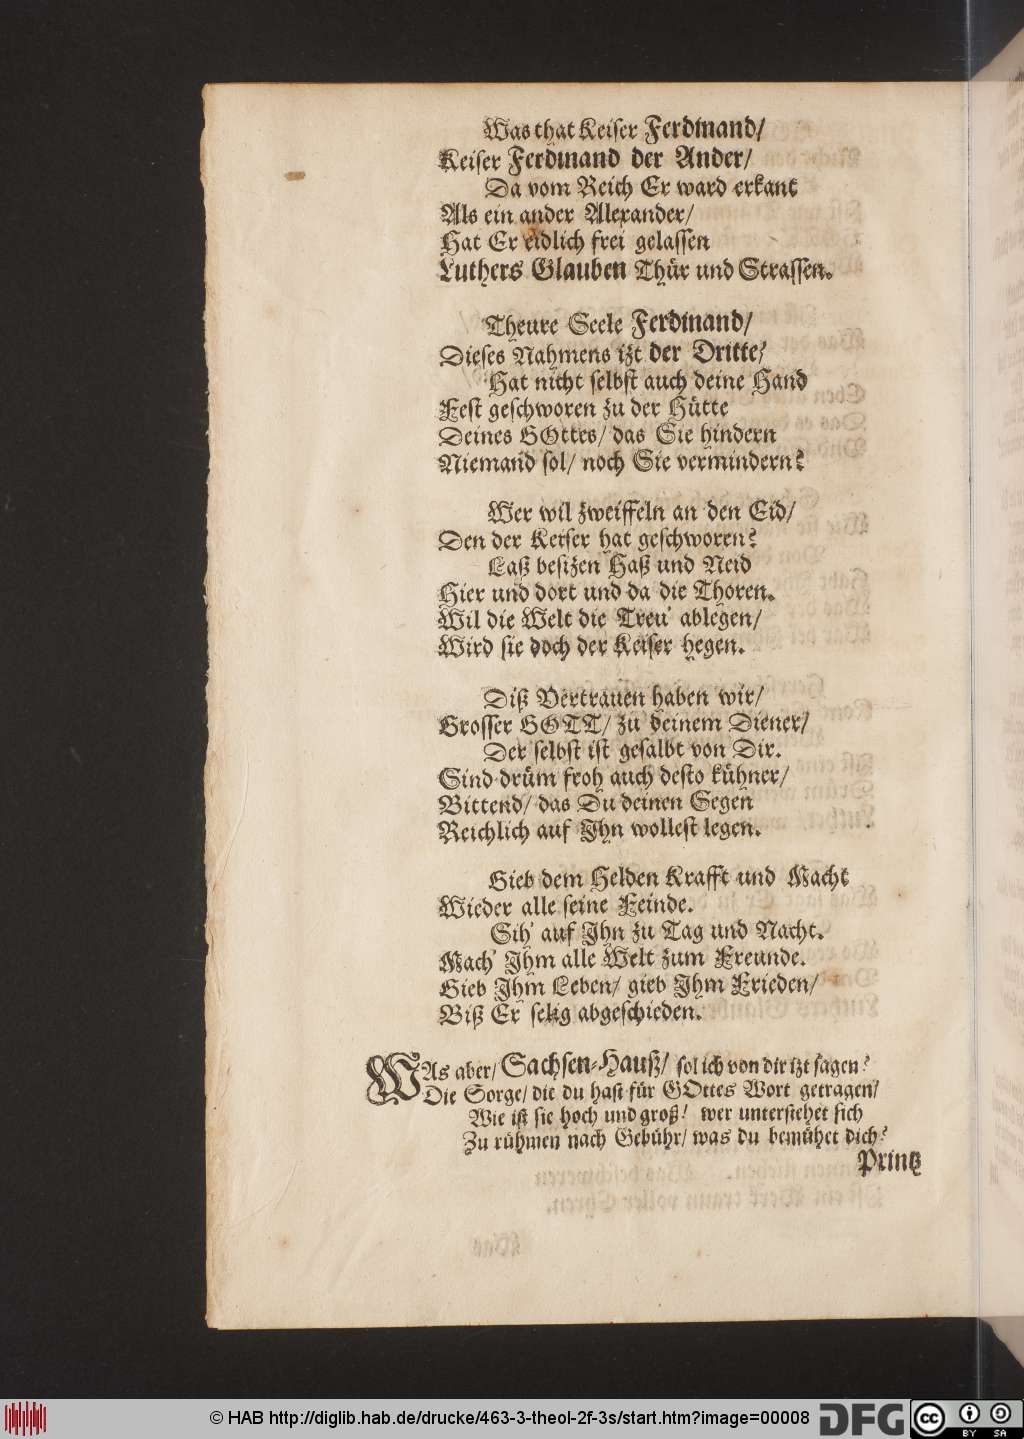 Was that Keiser Ferdinand/
Keiser Ferdinand der Ander/
Da vom Reich Er ward erkant
Als ein ander Alexander/
Hat Er eidlich frei gelassen
Luthers Glauben Thür und Strassen.
Theure Seele Ferdinand/
Dieses Nahmens izt der Dritte/
Hat nicht selbst auch deine Hand
Fest geschworen zu der Hütte
Deines GOttes/ das Sie hindern
Niemand sol/ noch Sie vermindern?
Wer wil zweiffeln an den Eid/
Den der Keiser hat geschworen?
Laß besizen Haß und Neid
Hier und dort und da die Thoren.
Wil die Welt die Treu' ablegen/
Wird sie doch der Keiser hegen.
Diß Vertrauen haben wir/
Grosser GOTT/ zu deinem Diener/
Der selbst ist gesalbt von Dir.
Sind drüm froh auch desto kühner/
Bittend/ das Du deinen Segen
Reichlich auf Ihn wollest legen.
Gieb dem Helden Krafft und Macht
Wieder alle seine Feinde.
Sih' auf Ihn zu Tag und Nacht.
Mach' Ihm alle Welt zum Freunde.
Gieb Ihm Leben/ gieb Ihm Frieden/
Biß Er selig abgeschieden.
WAs aber/ Sachsen-Hauß/ sol ich von dir izt sagen?
Die Sorge/ die du hast für GOttes Wort getragen/
Wie ist sie hoch und groß! wer unterstehet sich
Zu rühmen nach Gebühr/ was du bemühet dich?
Printz
© HAB http://diglib.hab.de/drucke/463-3-theol-2f-3s/start.htm?image=00008
DFG
cc BY SA